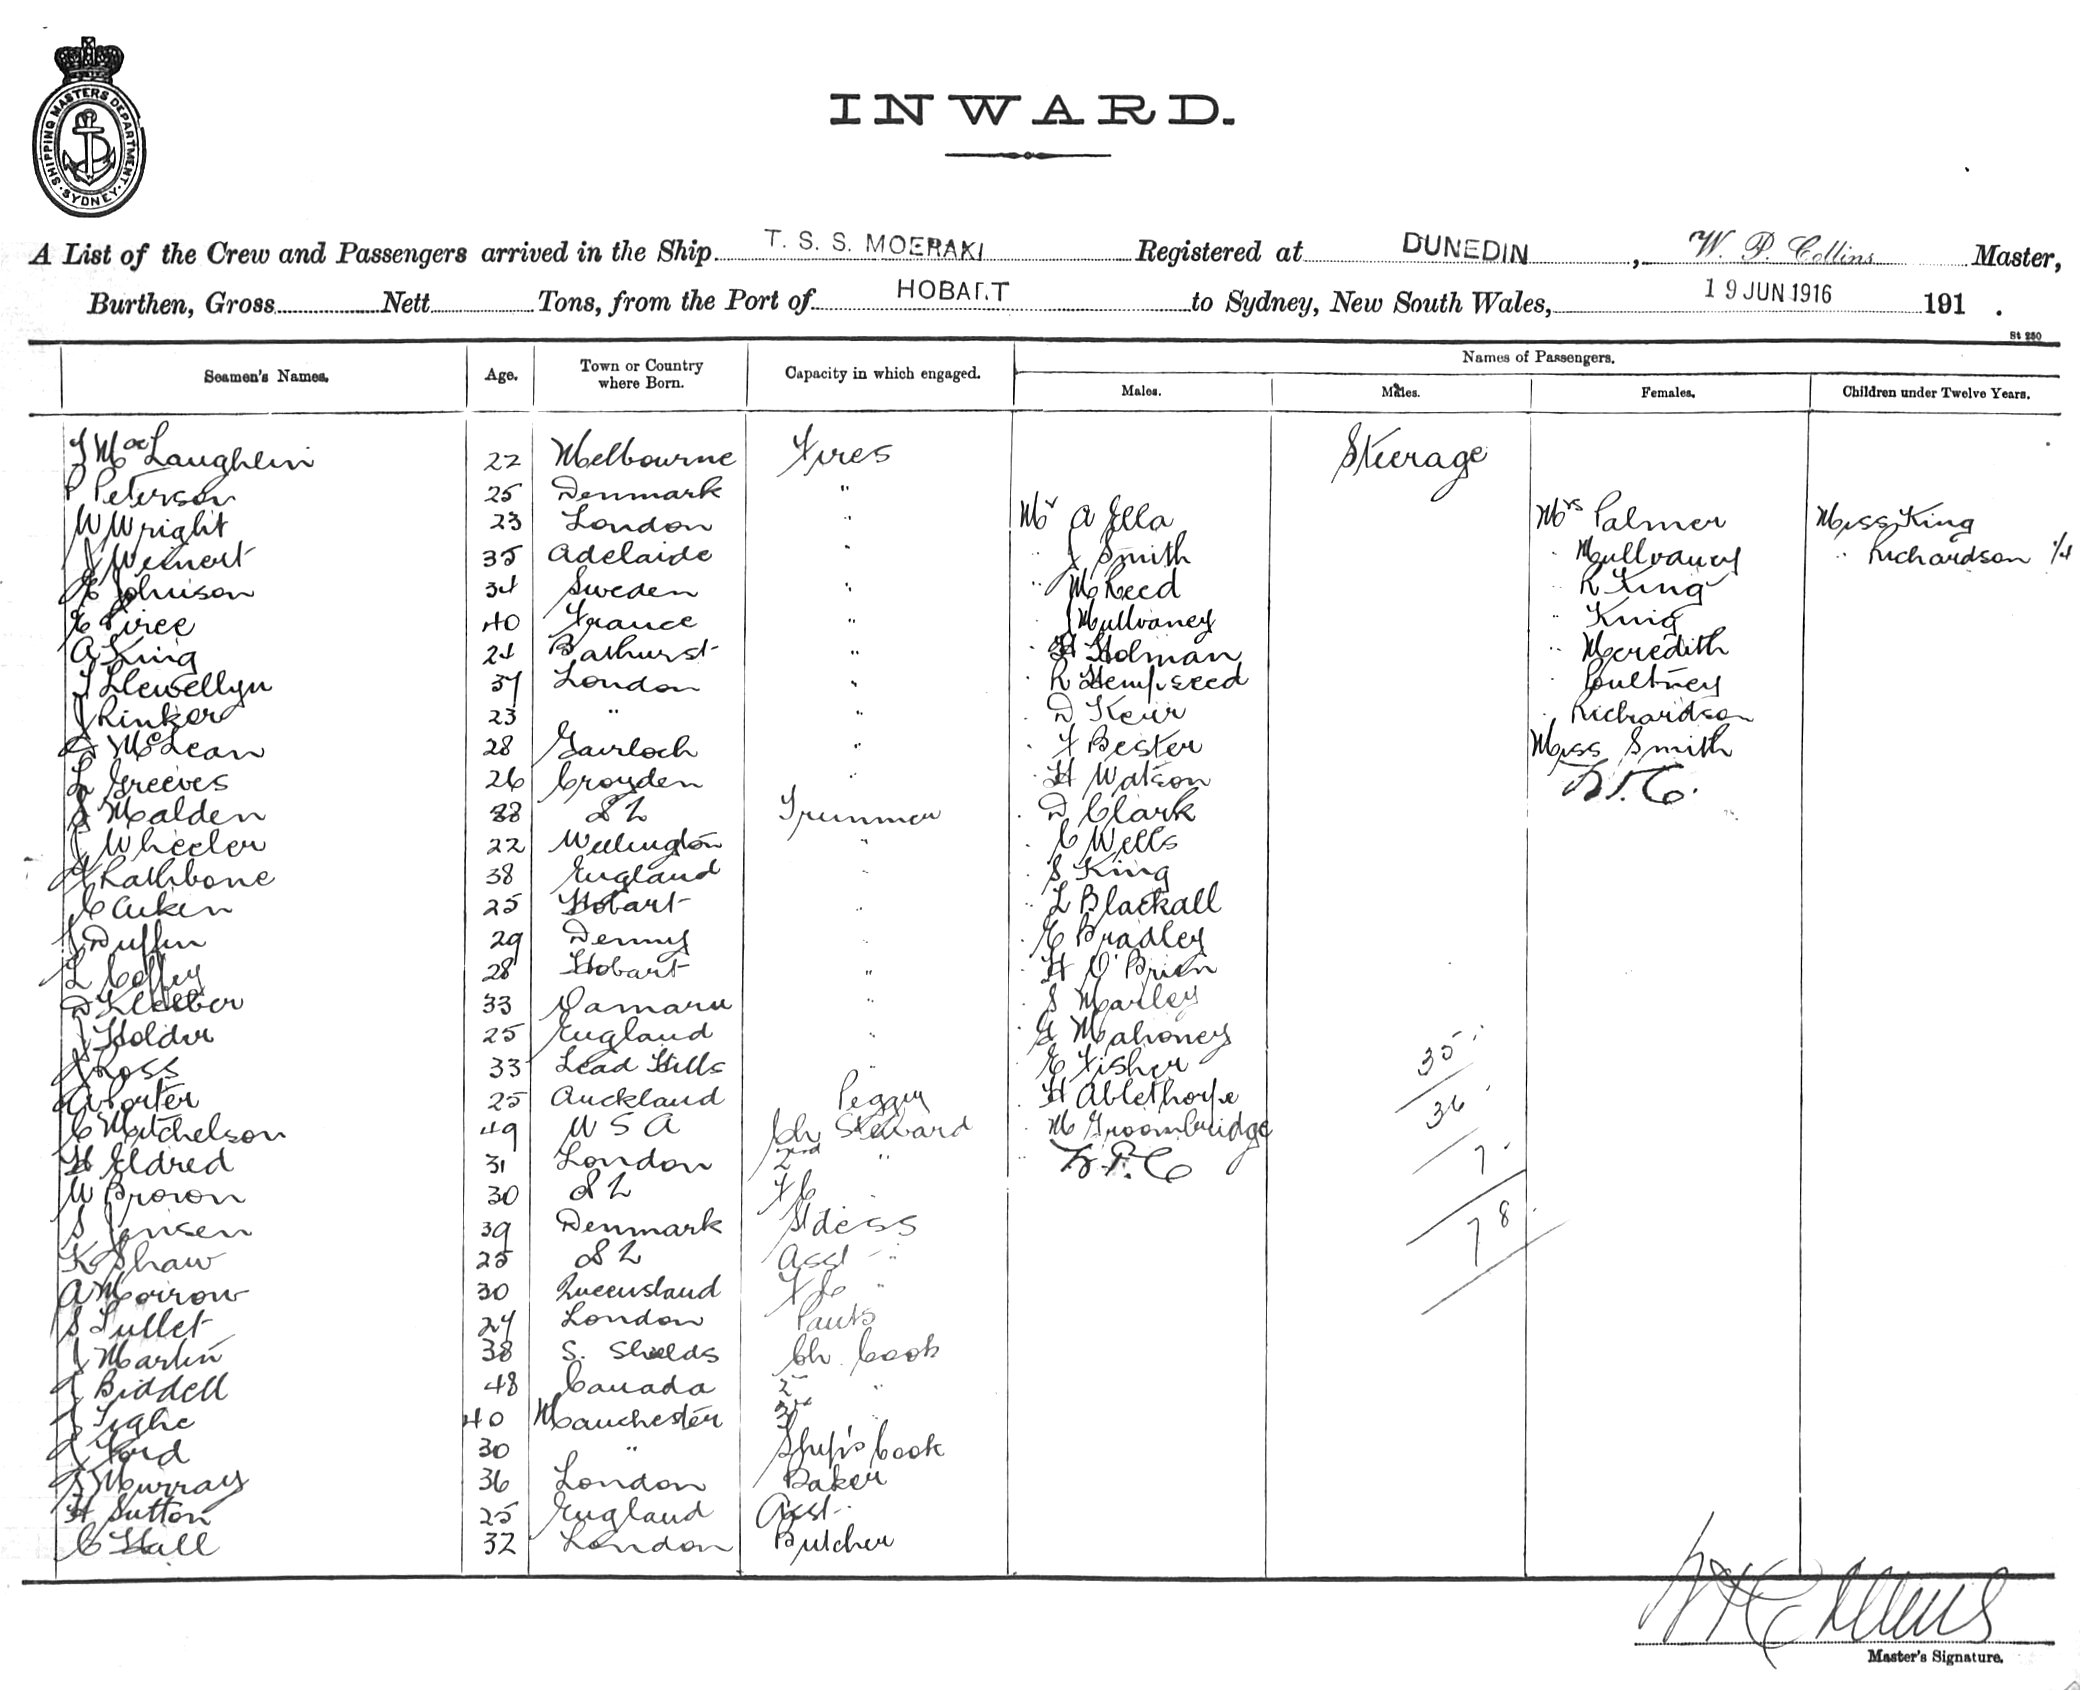 SHIPPING MASTERS DEPARTMENT · SYDNEY ·
INWARD.
A List of the Crew and Passengers arrived in the Ship T. S. S. MOERAKI Registered at DUNEDIN, W. P. Collins Master,
Burthen, Gross Nett Tons, from the Port of HOBART to Sydney, New South Wales, 19 JUN 1916 191 .
St 250
Names of Passengers.
Seamen's Names. Age. Town or Country where Born. Capacity in which engaged. Males. Males. Females. Children under Twelve Years.
J MacLaughlin 22 Melbourne Fires Steerage
P Peterson 25 Denmark "
W Wright 23 London " Mr A Ella Mrs Palmer Miss King
J Weinert 35 Adelaide " " J Smith " Mullvaney " Richardson 1/4
E Johnson 34 Sweden " " M Reed R King
E Piree 40 France " J Mullvaney " King
A King 24 Bathurst " " H Holman " Meredith
T Llewellyn 37 London " " R Hempseed " Poultney
J Rinker 23 " " " D Keir " Richardson
D McLean 28 Gairloch " " F Bester Miss Smith
L Greeves 26 Croyden " " H Watson W.P.C.
S Malden 28 S Z Trimmer " D Clark
J Wheeler 22 Wellington " " C Wells
H Rathbone 38 England " " S King
C Aiken 25 Hobart " " L Blackall
J Duffin 29 Denny " " E Bradley
L Coffey 28 Hobart " " H O'Brien
D 33 Oamaru " " S Marley
J Holder 25 England " " G Mahoney
J Ross 33 Lead Hills " " E Fisher 35
A Porter 25 Auckland Peggy " H Ablethorpe
C Mitchelson 49 U S A Ch Steward " M Groombridge 36
H Eldred 31 London 2nd " W.P.C 7
W Brown 30 S Z F C "
S Jensen 39 Denmark Stdess 78
K Shaw 25 S Z Asst "
A Morrow 30 Queensland F C "
S Tullet 24 London Pants
J Martin 38 S. Shields Ch. Cook
J Biddell 48 Canada 2 "
J Tighe 40 Manchester 3rd "
J Ford 30 " Ship's Cook
J Murray 36 London Baker
H Sutton 25 England Asst.
C Hall 32 London Butcher
W P Collins
Master's Signature.